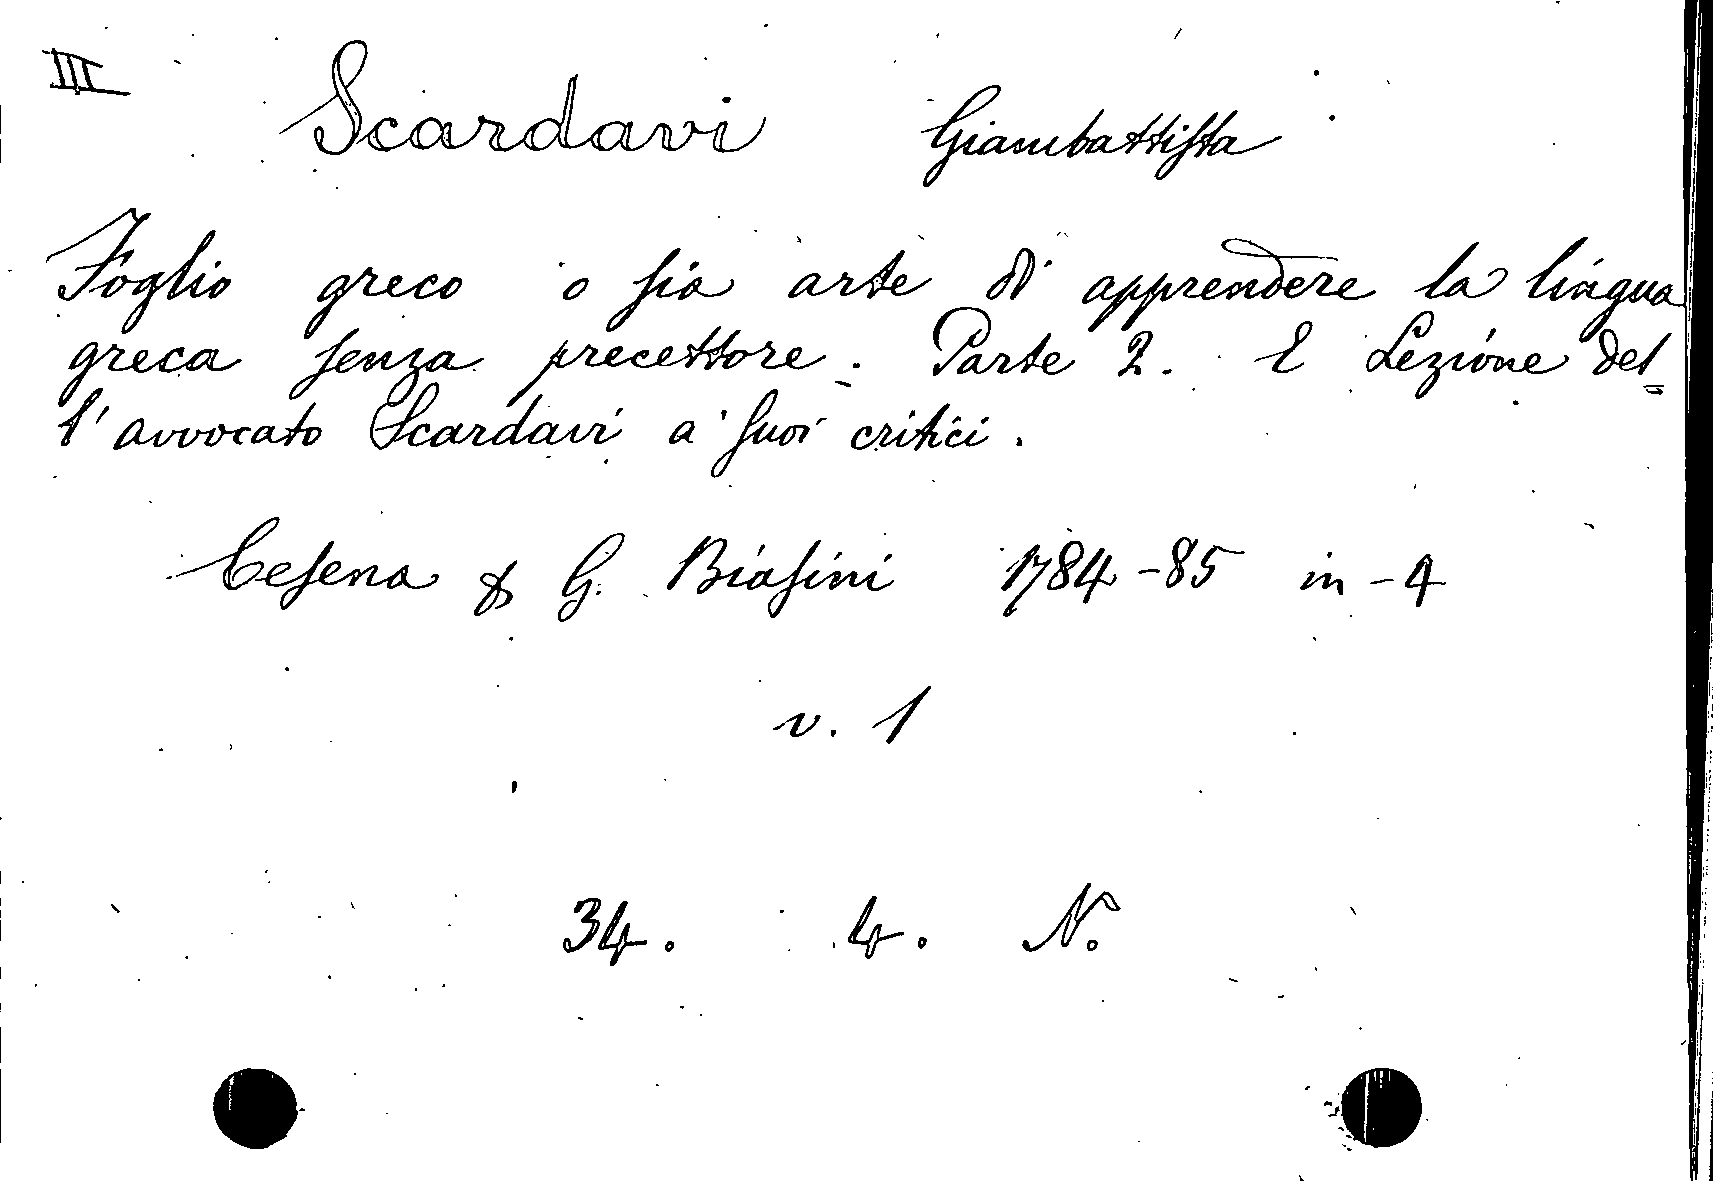 III
Scardavi Giambattista
Foglio greco o sia arte di apprendere la lingua
greca senza precettore. Parte 2. E Lezione del=
l'avvocato Scardavi a' suoi critici.
Cesena & G. Biasini 1784-85 in-4
v. 1
34. 4. N.